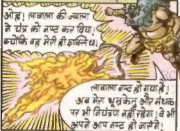 ओह! लाबाला की ज्वाला
ने यंत्र को नष्ट कर दिया।
क्योंकि वह मेरी ही शक्ति थी।
लाबाला नष्ट हो गया है!
अब मेरा धूमकेतु और मंथक
पर भी नियंत्रण नहीं रहेगा। वे भी
अपने आप नष्ट हो जायेंगे।